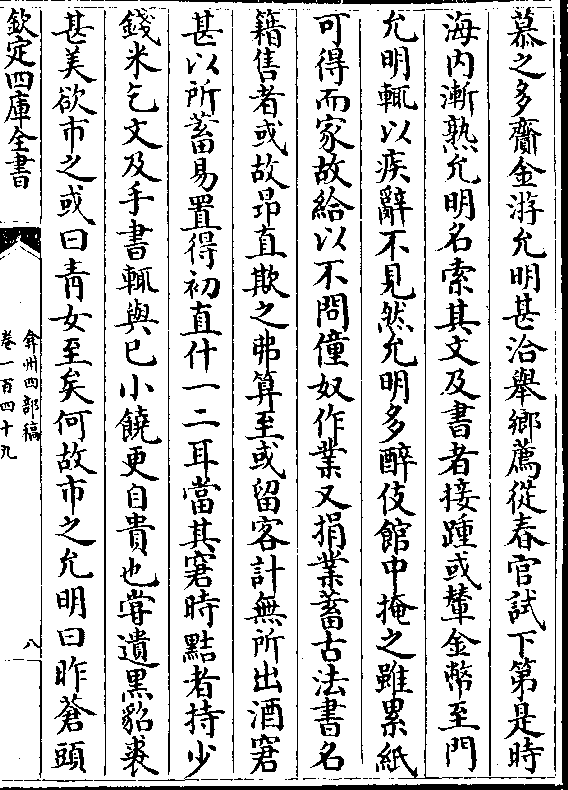 慕之多齎金游允明甚洽舉鄉薦從春官試下第是時
海内漸熟允明名索其文及書者接踵或輦金幣至門
允明輒以疾辭不見然允明多醉伎館中掩之雖累紙
可得而家故給以不問僮奴作業又捐業蓄古法書名
籍售者或故昂直欺之弗算至或留客計無所出酒窘
甚以所蓄易置得初直什一二耳當其窘時黠者持少
錢米乞文及手書輒與已小饒更自貴也嘗遺黑貂裘
甚美欲市之或曰青女至矣何故市之允明曰昨蒼頭
欽定四庫全書
弇州四部稿
卷一百四十九
八